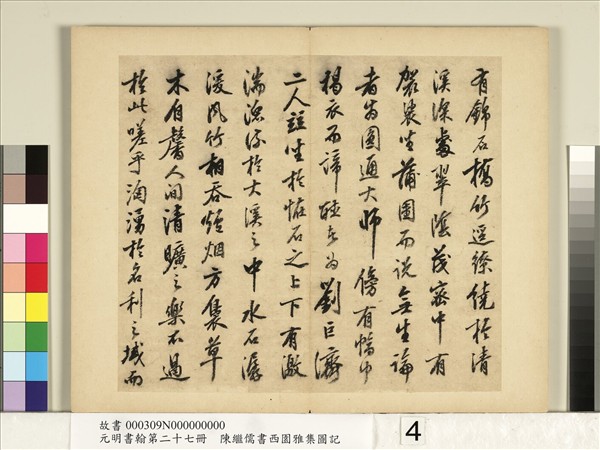 有錦石橋竹逕繚繞於清
溪深處翠陰茂密中有
袈裟坐蒲團而說無生論
者為圓通大師傍有幅巾
褐衣而諦聽者為劉巨濟
二人並坐於怪石之上下有激
湍潀流於大溪之中水石潺
湲風竹相吞爐烟方裊草
木自馨人間清曠之樂不過
於此嗟乎洶湧於名利之域而
故書 000309N000000000
元明書翰第二十七冊 陳繼儒書西園雅集圖記
4